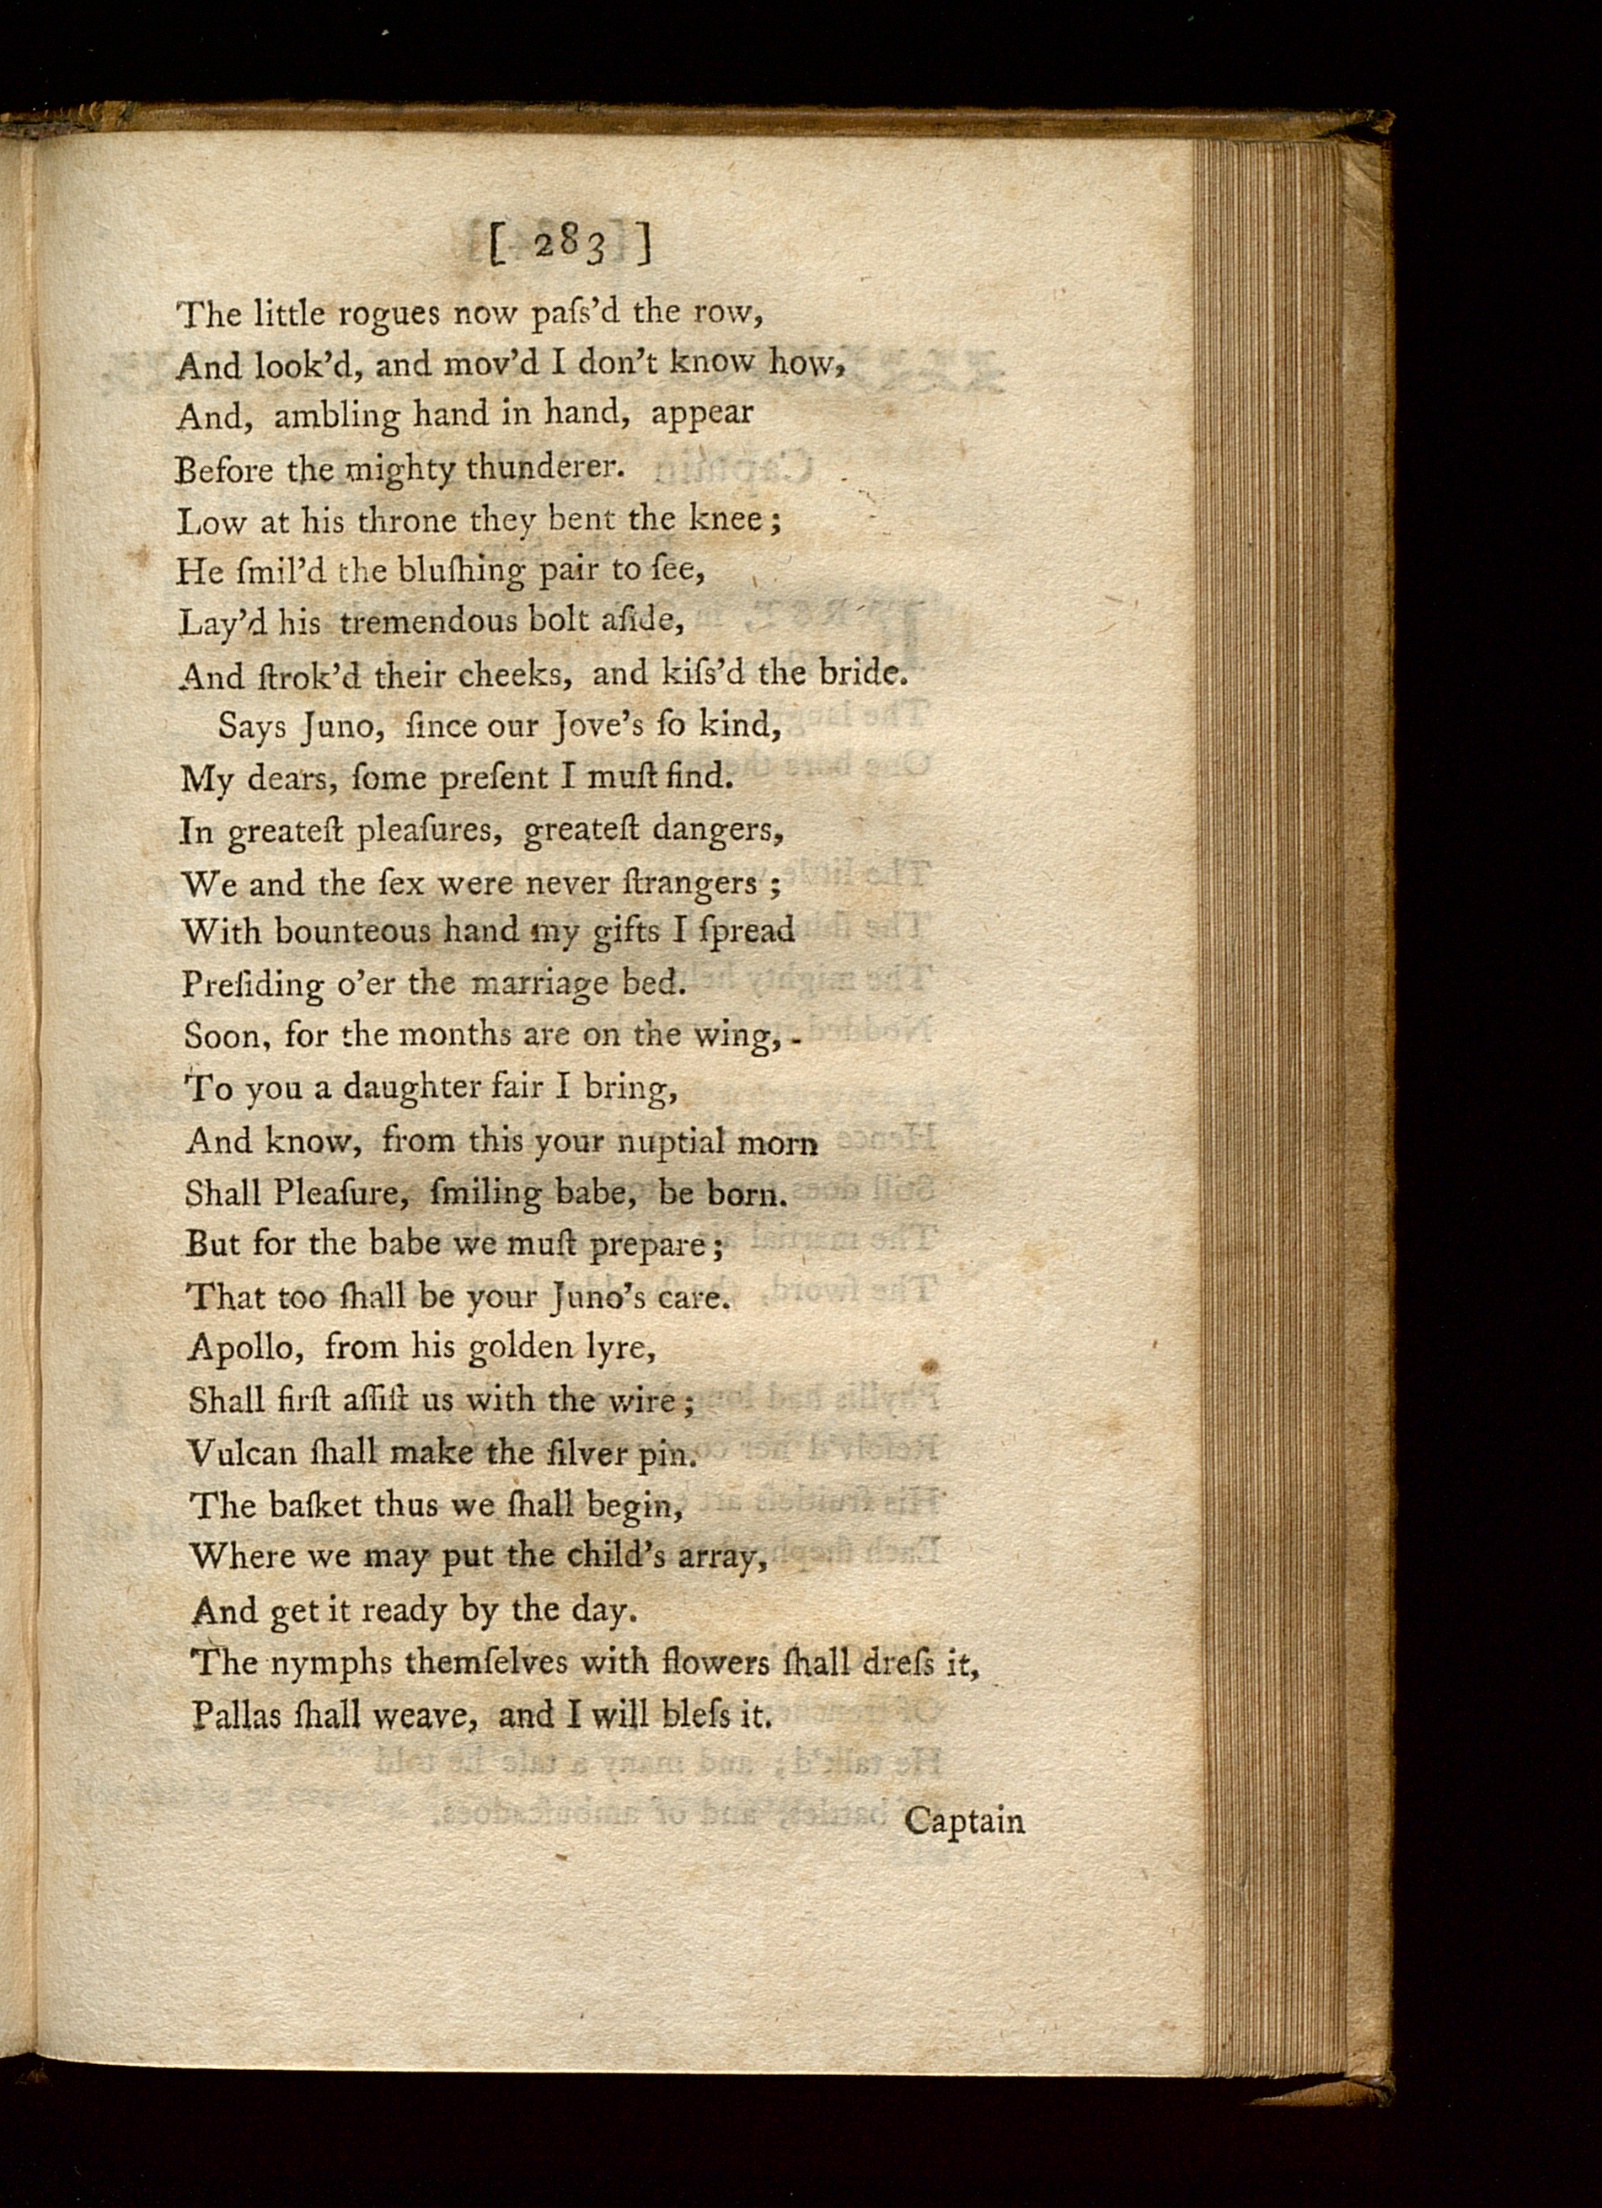 [ 283 ]
The little rogues now paſs'd the row,
And look'd, and mov'd I don't know how,
And, ambling hand in hand, appear
Before the mighty thunderer.
Low at his throne they bent the knee;
He ſmil'd the bluſhing pair to ſee,
Lay'd his tremendous bolt aſide,
And ſtrok'd their cheeks, and kiſs'd the bride.
Says Juno, ſince our Jove's ſo kind,
My dears, ſome preſent I muſt find.
In greateſt pleaſures, greateſt dangers,
We and the ſex were never ſtrangers;
With bounteous hand my gifts I ſpread
Preſiding o'er the marriage bed.
Soon, for the months are on the wing,
To you a daughter fair I bring,
And know, from this your nuptial morn
Shall Pleaſure, ſmiling babe, be born.
But for the babe we muſt prepare;
That too ſhall be your Juno's care.
Apollo, from his golden lyre,
Shall firſt aſſiſt us with the wire;
Vulcan ſhall make the ſilver pin.
The baſket thus we ſhall begin,
Where we may put the child's array,
And get it ready by the day.
The nymphs themſelves with flowers ſhall dreſs it,
Pallas ſhall weave, and I will bleſs it.
Captain